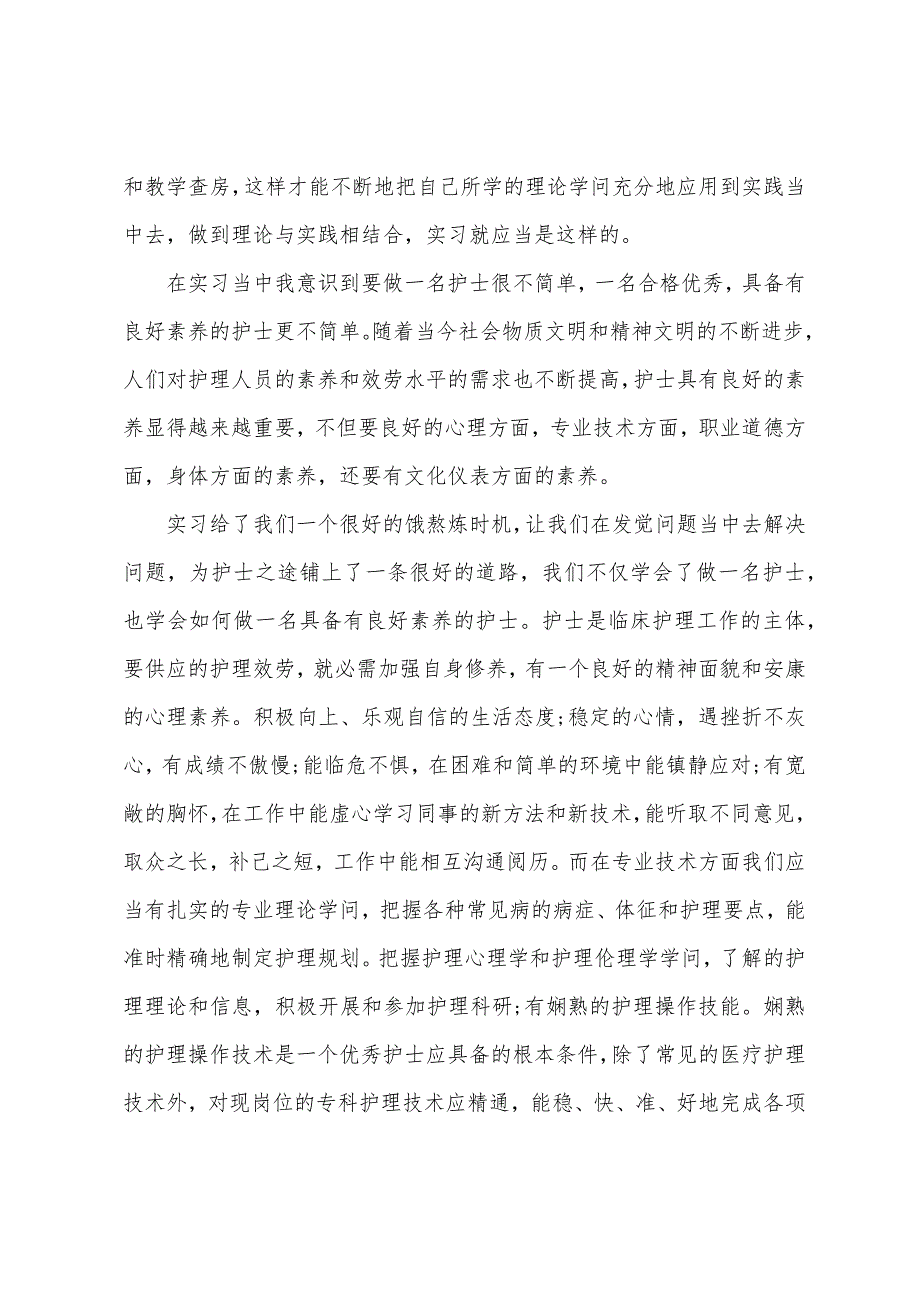 和教学查房,这样才能不断地把自己所学的理论学问充分地应用到实践当
中去，做到理论与实践相结合，实习就应当是这样的。
在实习当中我意识到要做一名护士很不简单，一名合格优秀，具备有
良好素养的护士更不简单。随着当今社会物质文明和精神文明的不断进步，
人们对护理人员的素养和效劳水平的需求也不断提高,护士具有良好的素
养显得越来越重要，不但要良好的心理方面，专业技术方面，职业道德方
面，身体方面的素养，还要有文化仪表方面的素养。
实习给了我们一个很好的饿熬炼时机,让我们在发觉问题当中去解决
问题，为护士之途铺上了一条很好的道路，我们不仅学会了做一名护士，
也学会如何做一名具备有良好素养的护士。护士是临床护理工作的主体，
要供应的护理效劳，就必需加强自身修养，有一个良好的精神面貌和安康
的心理素养。积极向上、乐观自信的生活态度;稳定的心情，遇挫折不灰
心，有成绩不傲慢;能临危不惧，在困难和简单的环境中能镇静应对;有宽
敞的胸怀,在工作中能虚心学习同事的新方法和新技术,能听取不同意见，
取众之长，补己之短，工作中能相互沟通阅历。而在专业技术方面我们应
当有扎实的专业理论学问，把握各种常见病的病症、体征和护理要点，能
准时精确地制定护理规划。把握护理心理学和护理伦理学学问，了解的护
理理论和信息，积极开展和参加护理科研;有娴熟的护理操作技能。娴熟
的护理操作技术是一个优秀护士应具备的根本条件,除了常见的医疗护理
技术外，对现岗位的专科护理技术应精通，能稳、快、准、好地完成各项